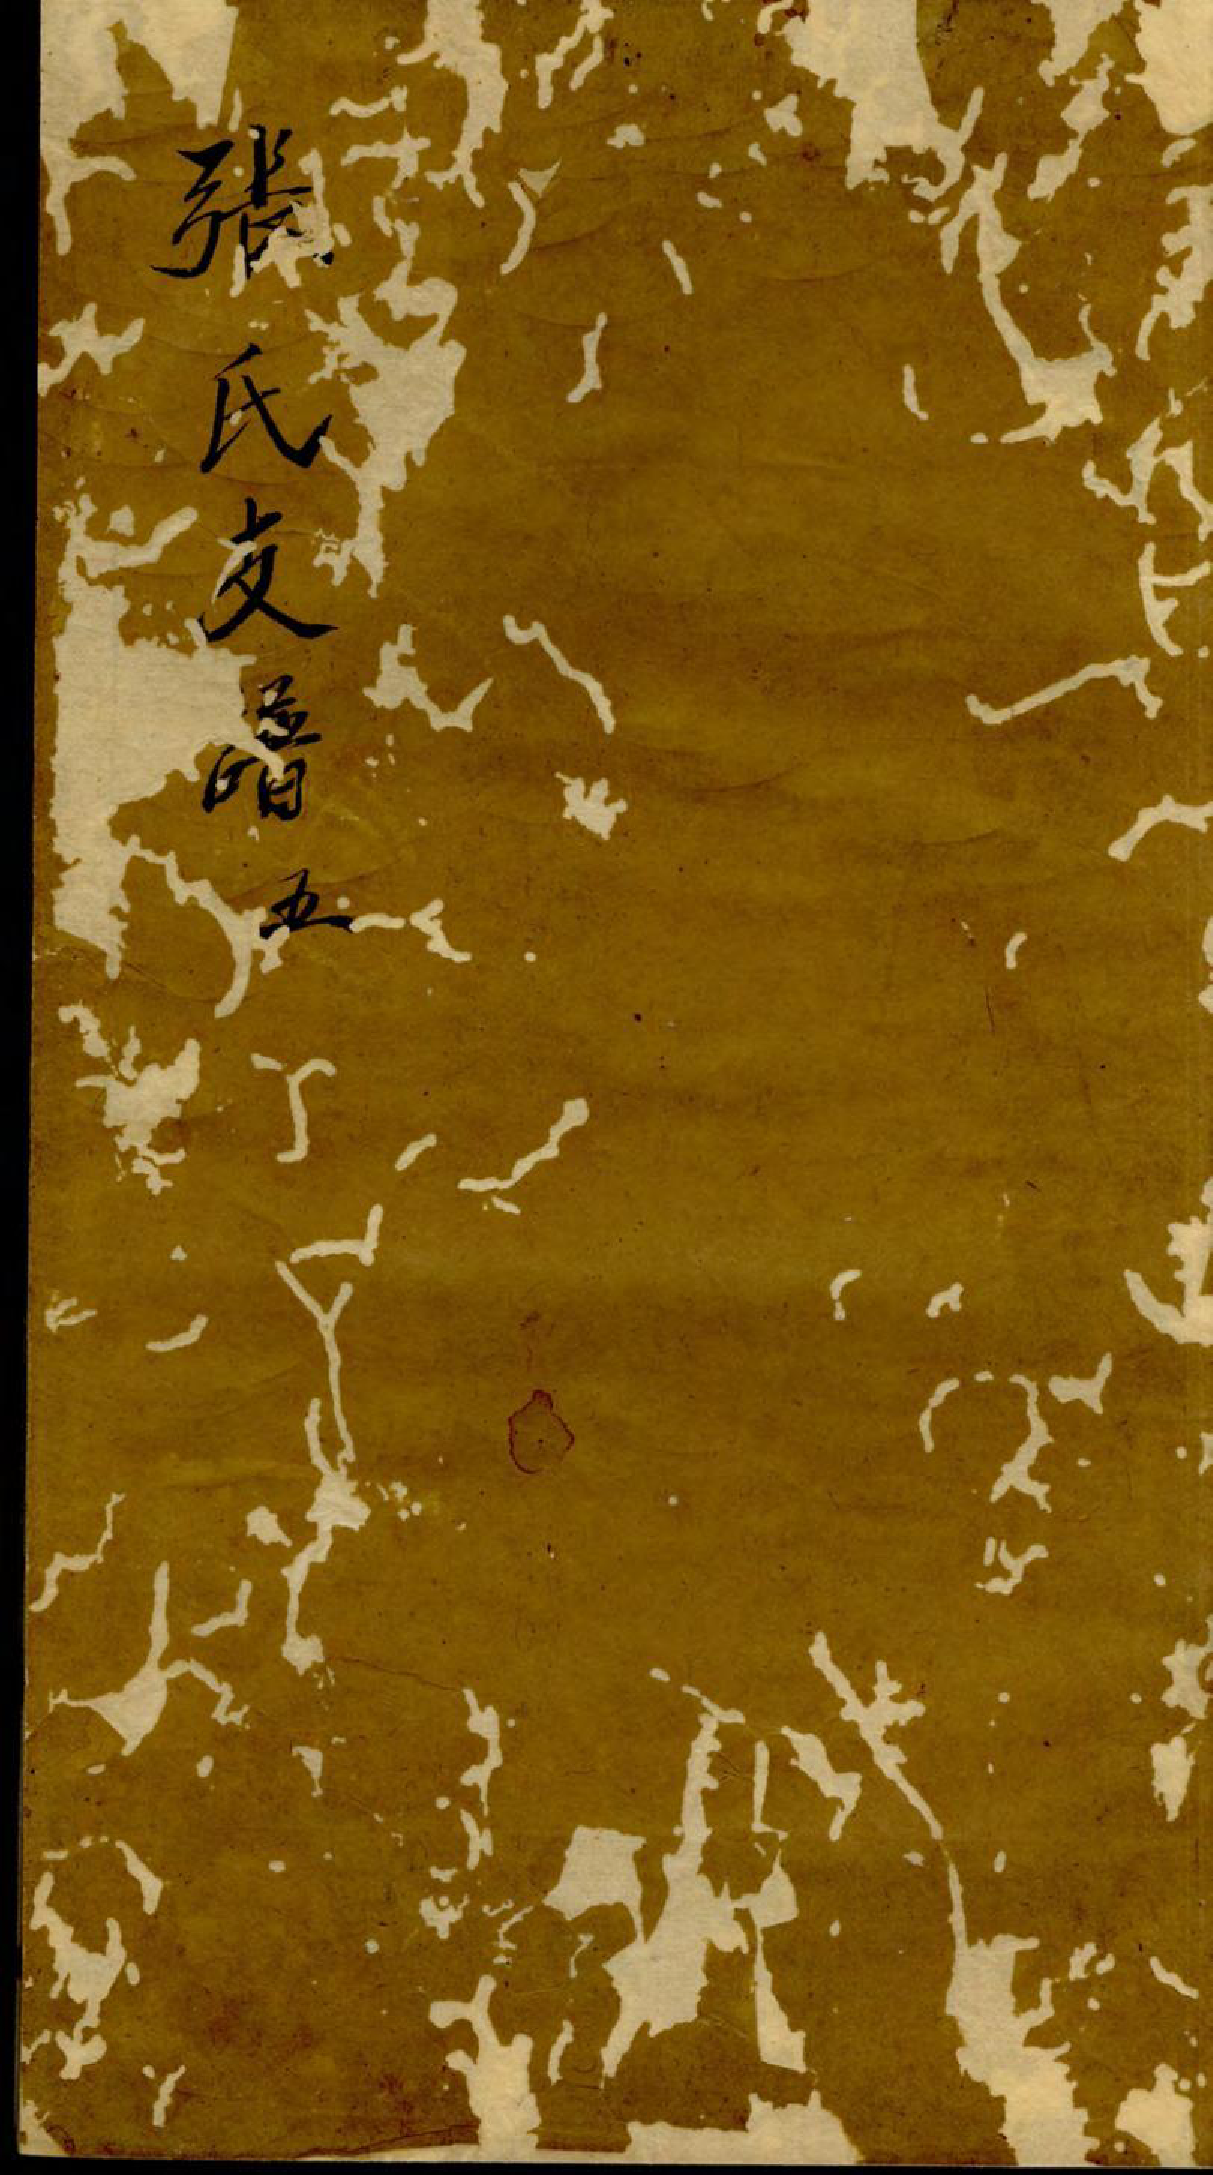 張氏支譜 五